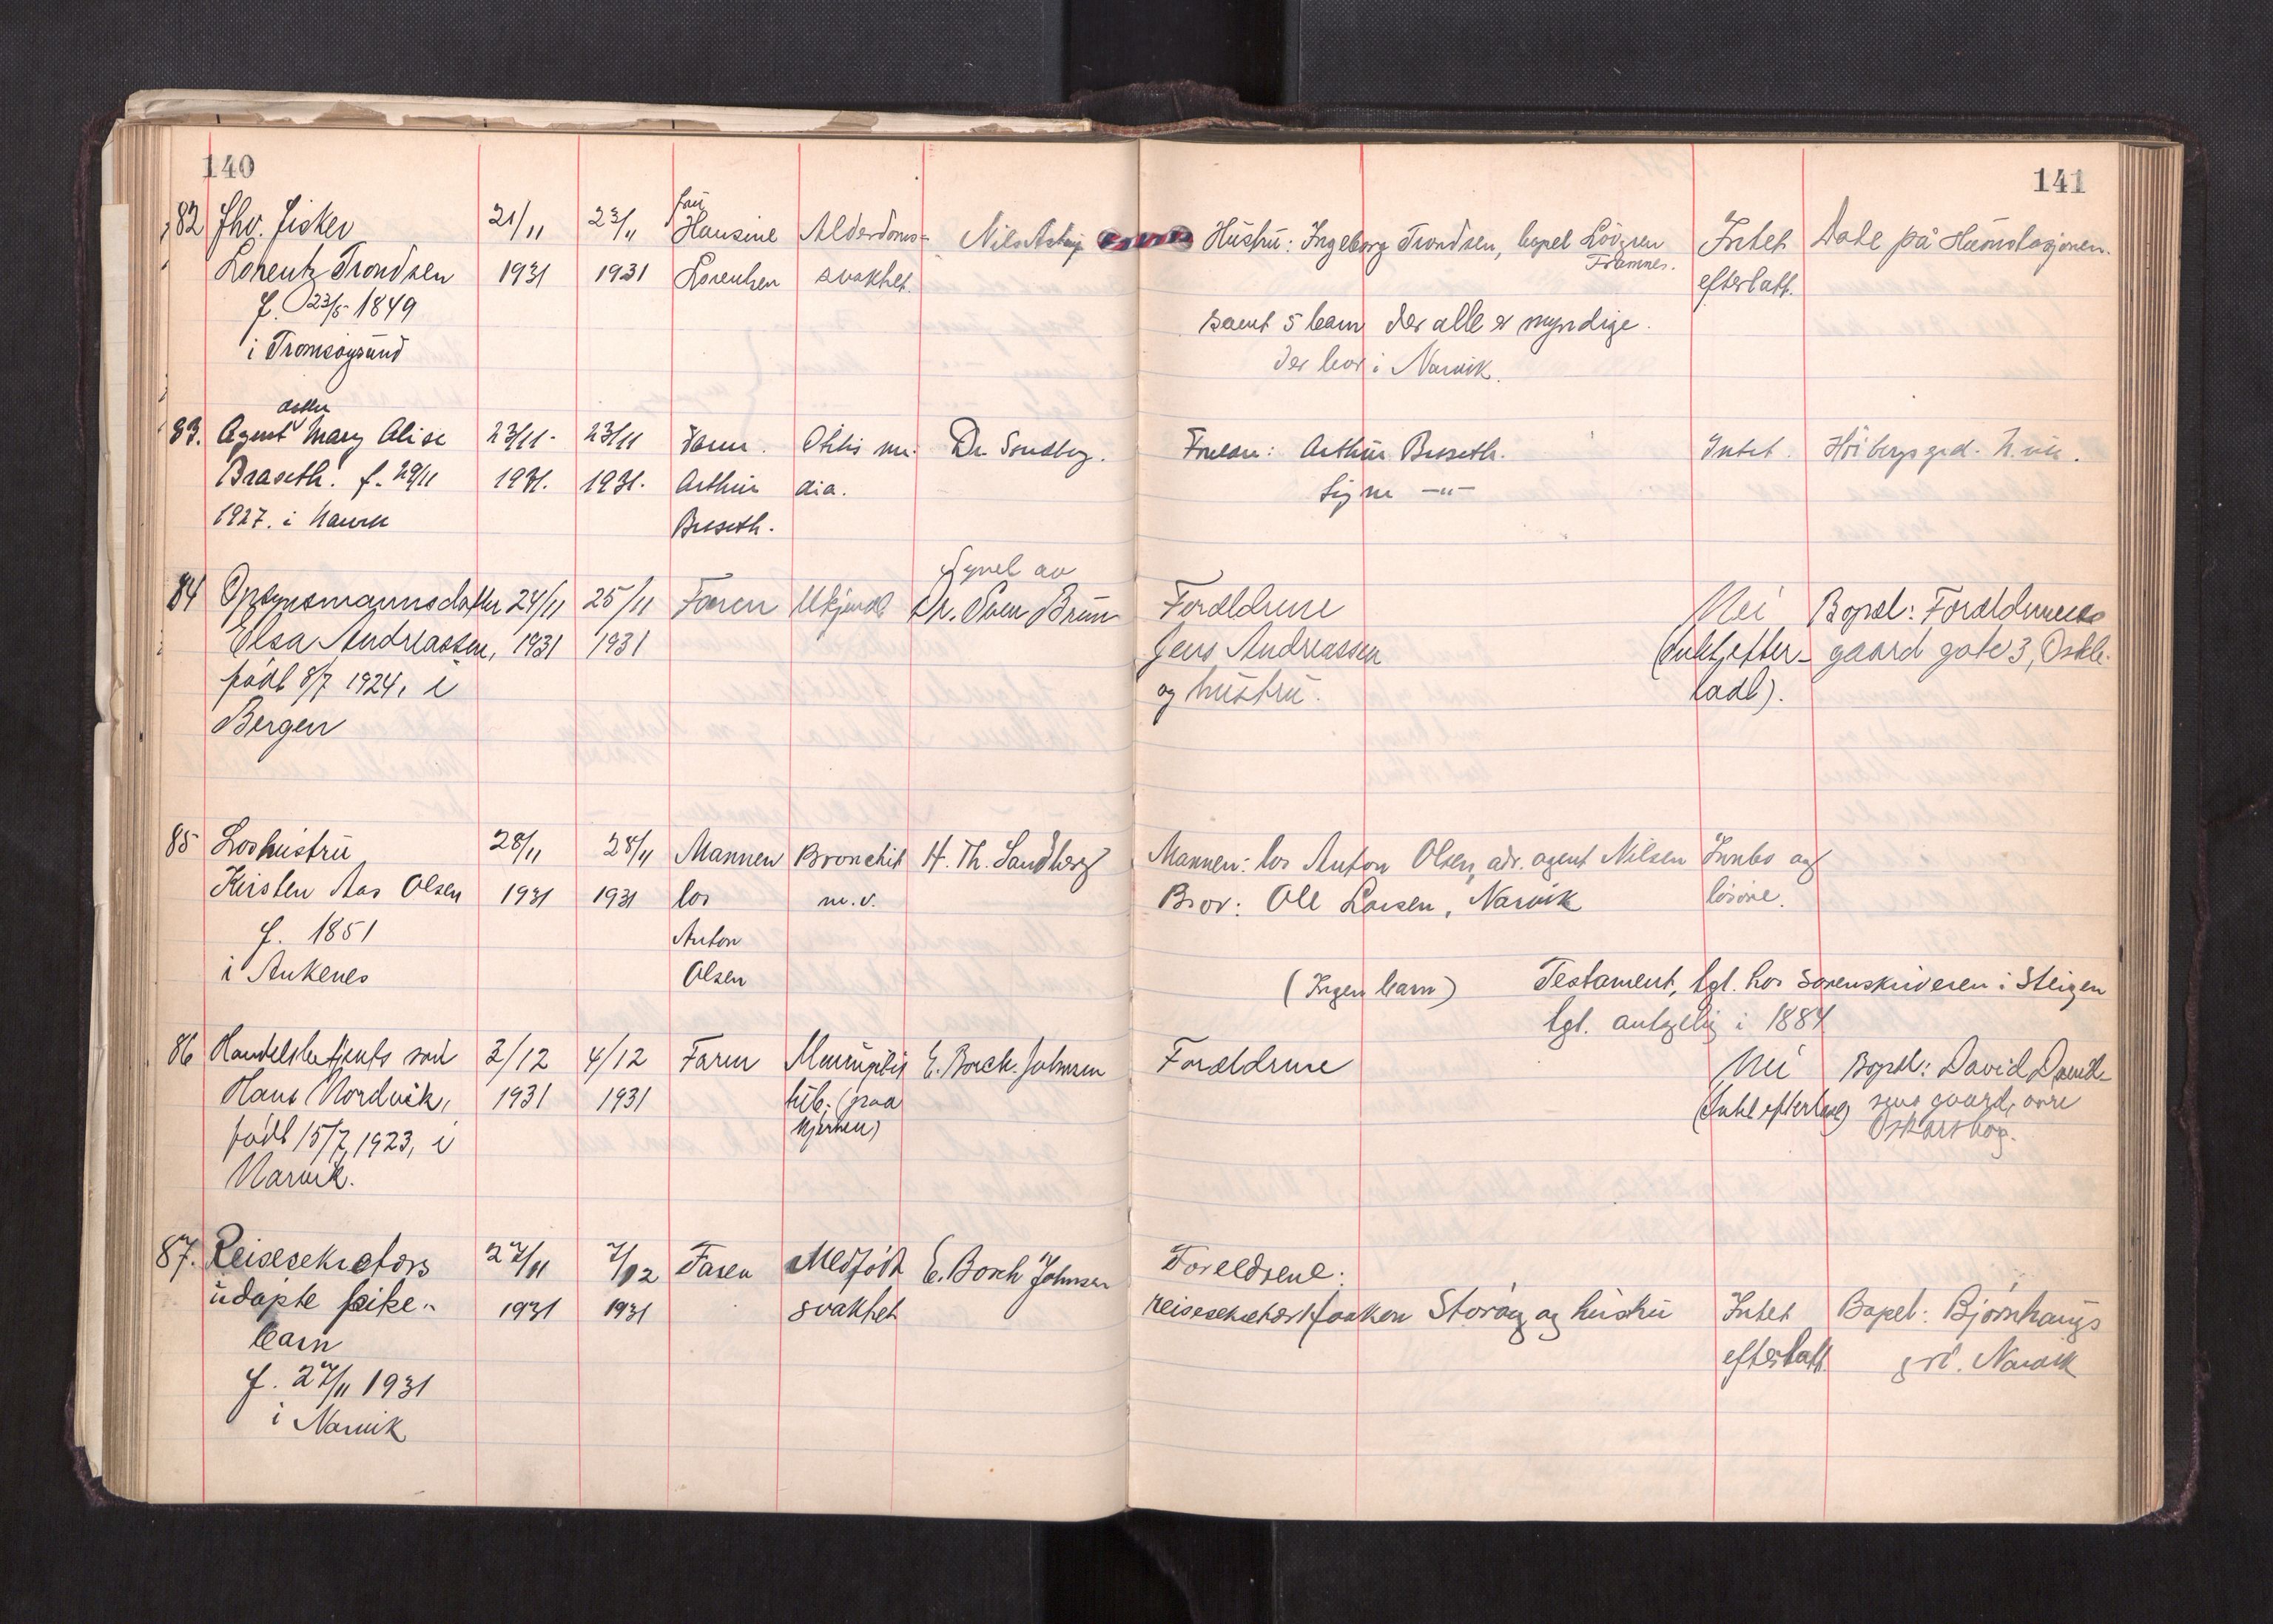 140
141
82 fhv. fisker 21/11 23/11 fru Hansine Alderdoms- Nils Husťru: Ingeborg Trondsen, bopel Lövgren Intet Døde på
Lorentz Trondsen 1931 1931 Lorentsen svakhet. Framnes. efterlatt.
f. 23/5 1849 samt 5 barn der alle er myndige.
i Tromsøysund der bor i Narvik.
datter
83. Agent Mary Alise 23/11- 23/11 Faren. Otitis me- Dr. Sandberg. Foreldre: Arthur Braseth. Intet.
Braseth. f. 29/11 1931. 1931. Arthur dia. Signe -"-
1927. i Narvik Braseth.
Synet av
84 Opsynsmannsdatter 24/11 25/11 Faren Ukjendt Dr. Sven Brun Foreldrene Nei Bopel: Foreldrenes
Elsa Andreassen, 1931 1931 Jens Andreassen (Intet efter- gaard gate 3,
født 8/7 1924, i og hustru. ladt).
Bergen
85 Loshustru 28/11 28/11 Mannen Bronchit H. Th. Sandberg Mannen: los Anton Olsen, adr. agent Nilsen Innbo og
Kirsten Aas Olsen 1931 1931 los m.v. Bror: Ole Larsen, Narvik løsøre.
f. 1851 Anton
i Ankenes Olsen (Ingen barn) Testament, tgl. hos sorenskriveren i Steigen
tgl. antagelig i 1884
86 Handelsbetjents søn 2/12 4/12 Faren Meningitis E. Borch-Johnsen Foreldrene Nei Bopel: David David-
Hans Nordvik, 1931 1931 tub. (paa (Intet efterladt) sens gaard, øvre
født 15/7 1923, i hjernen) Oskarsborg.
Narvik.
87. Reisesekretærs 27/11 7/12 Faren Medfødt E. Borch Johnsen Foreldrene:
udøpte pike- 1931 1931 svakhet reisesekretær Haakon Storøy og hustru Intet Bopel: Bjørnhaugs
barn efterlatt. grd. Narvik
f. 27/11 1931
i Narvik